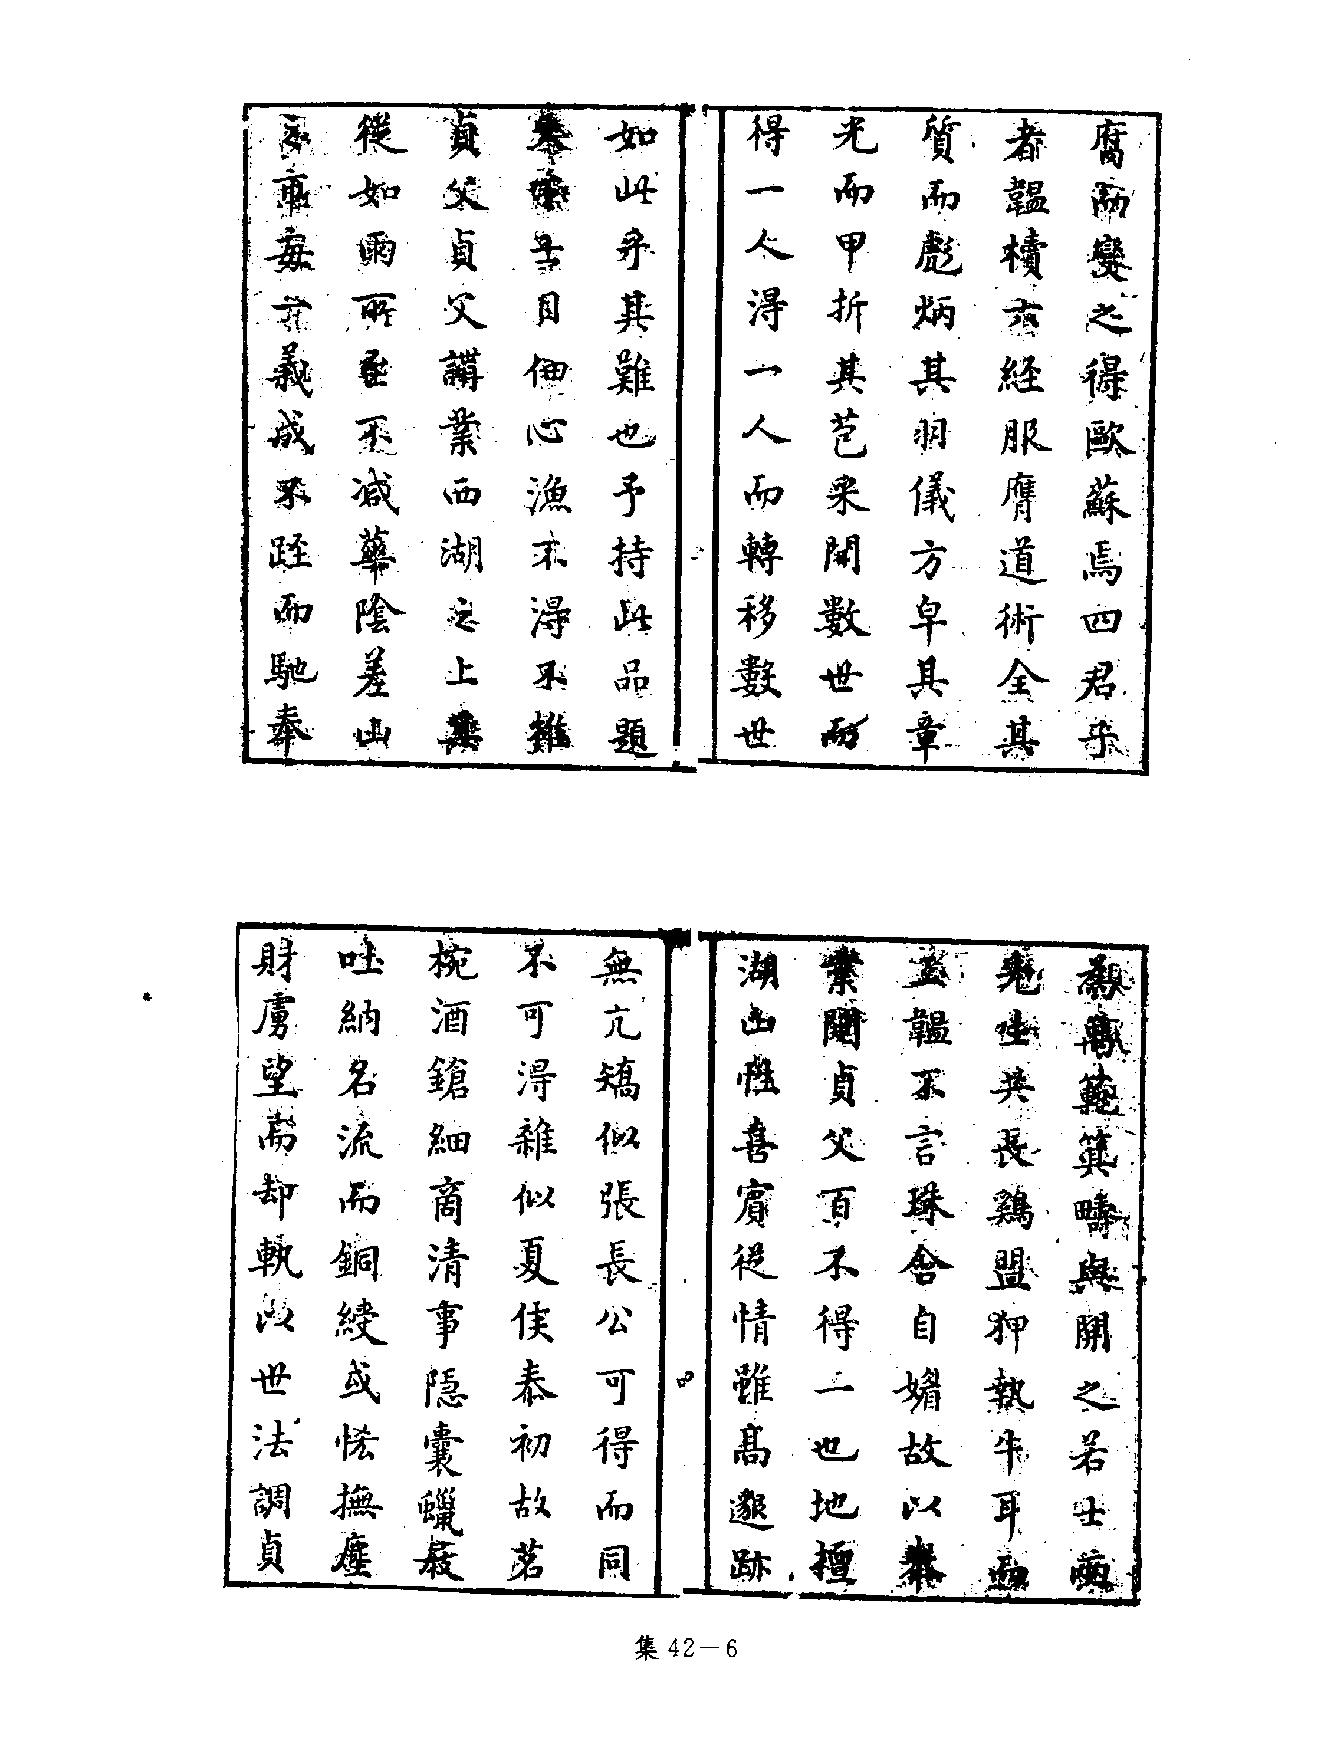 腐而變之得歐蘇焉四君乎
者韞櫝六經服膺道術全其
質而彪炳其羽儀方皁其章
光而甲折其苞来開數世而
得一人得一人而轉移數世
如此乎其難也予持此品題
士目佃心漁不得不推
貞父貞父講業西湖之上
從如雨所至不减華陰差山
市每六義成不踁而馳奉
範箕疇與開之若士
吐共長鷄盟狎執牛耳而
韞不言珠含自媚故以
開貞父百不得一也地擅
湖山性喜賓從情雖髙邈跡
無亢矯似張長公可得而同
不可得雜似夏侯泰初故茗
椀酒鎗細商清事隱囊蠟屐
吐納名流而銅綫或恡撫塵
財虜望崙却軌以世法調貞
集42－6